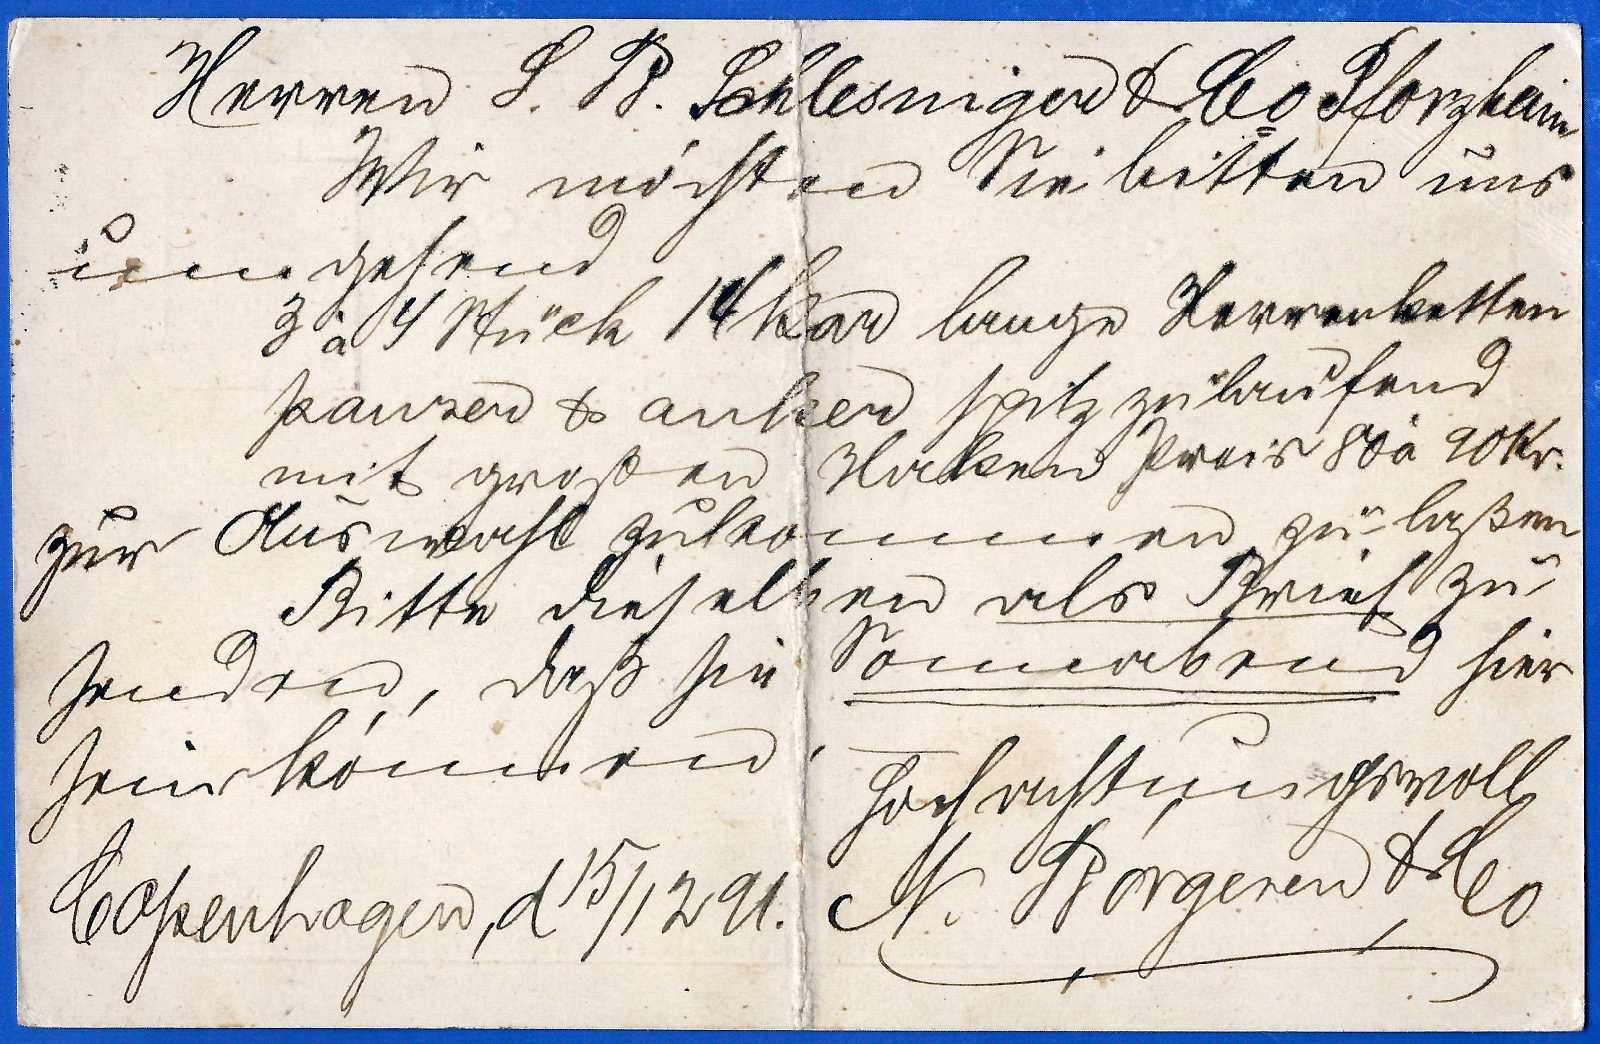 Herren S. B. Schlesinger & Co Pforzheim
Wir möchten Sie bitten uns
umgehend
3 à 4 Stück 14 Kar lange Herrenketten
panzer & anker spitz zulaufend
mit großen Haken Preis 80 à 90 Kr.
zur Auswahl zukommen zu laßen
Bitte dieselben als Brief zu
senden, daß sie Sonnabend hier
sein können.
Hochachtungsvoll
Copenhagen, d 15/12 91. N. Börgesen & Co